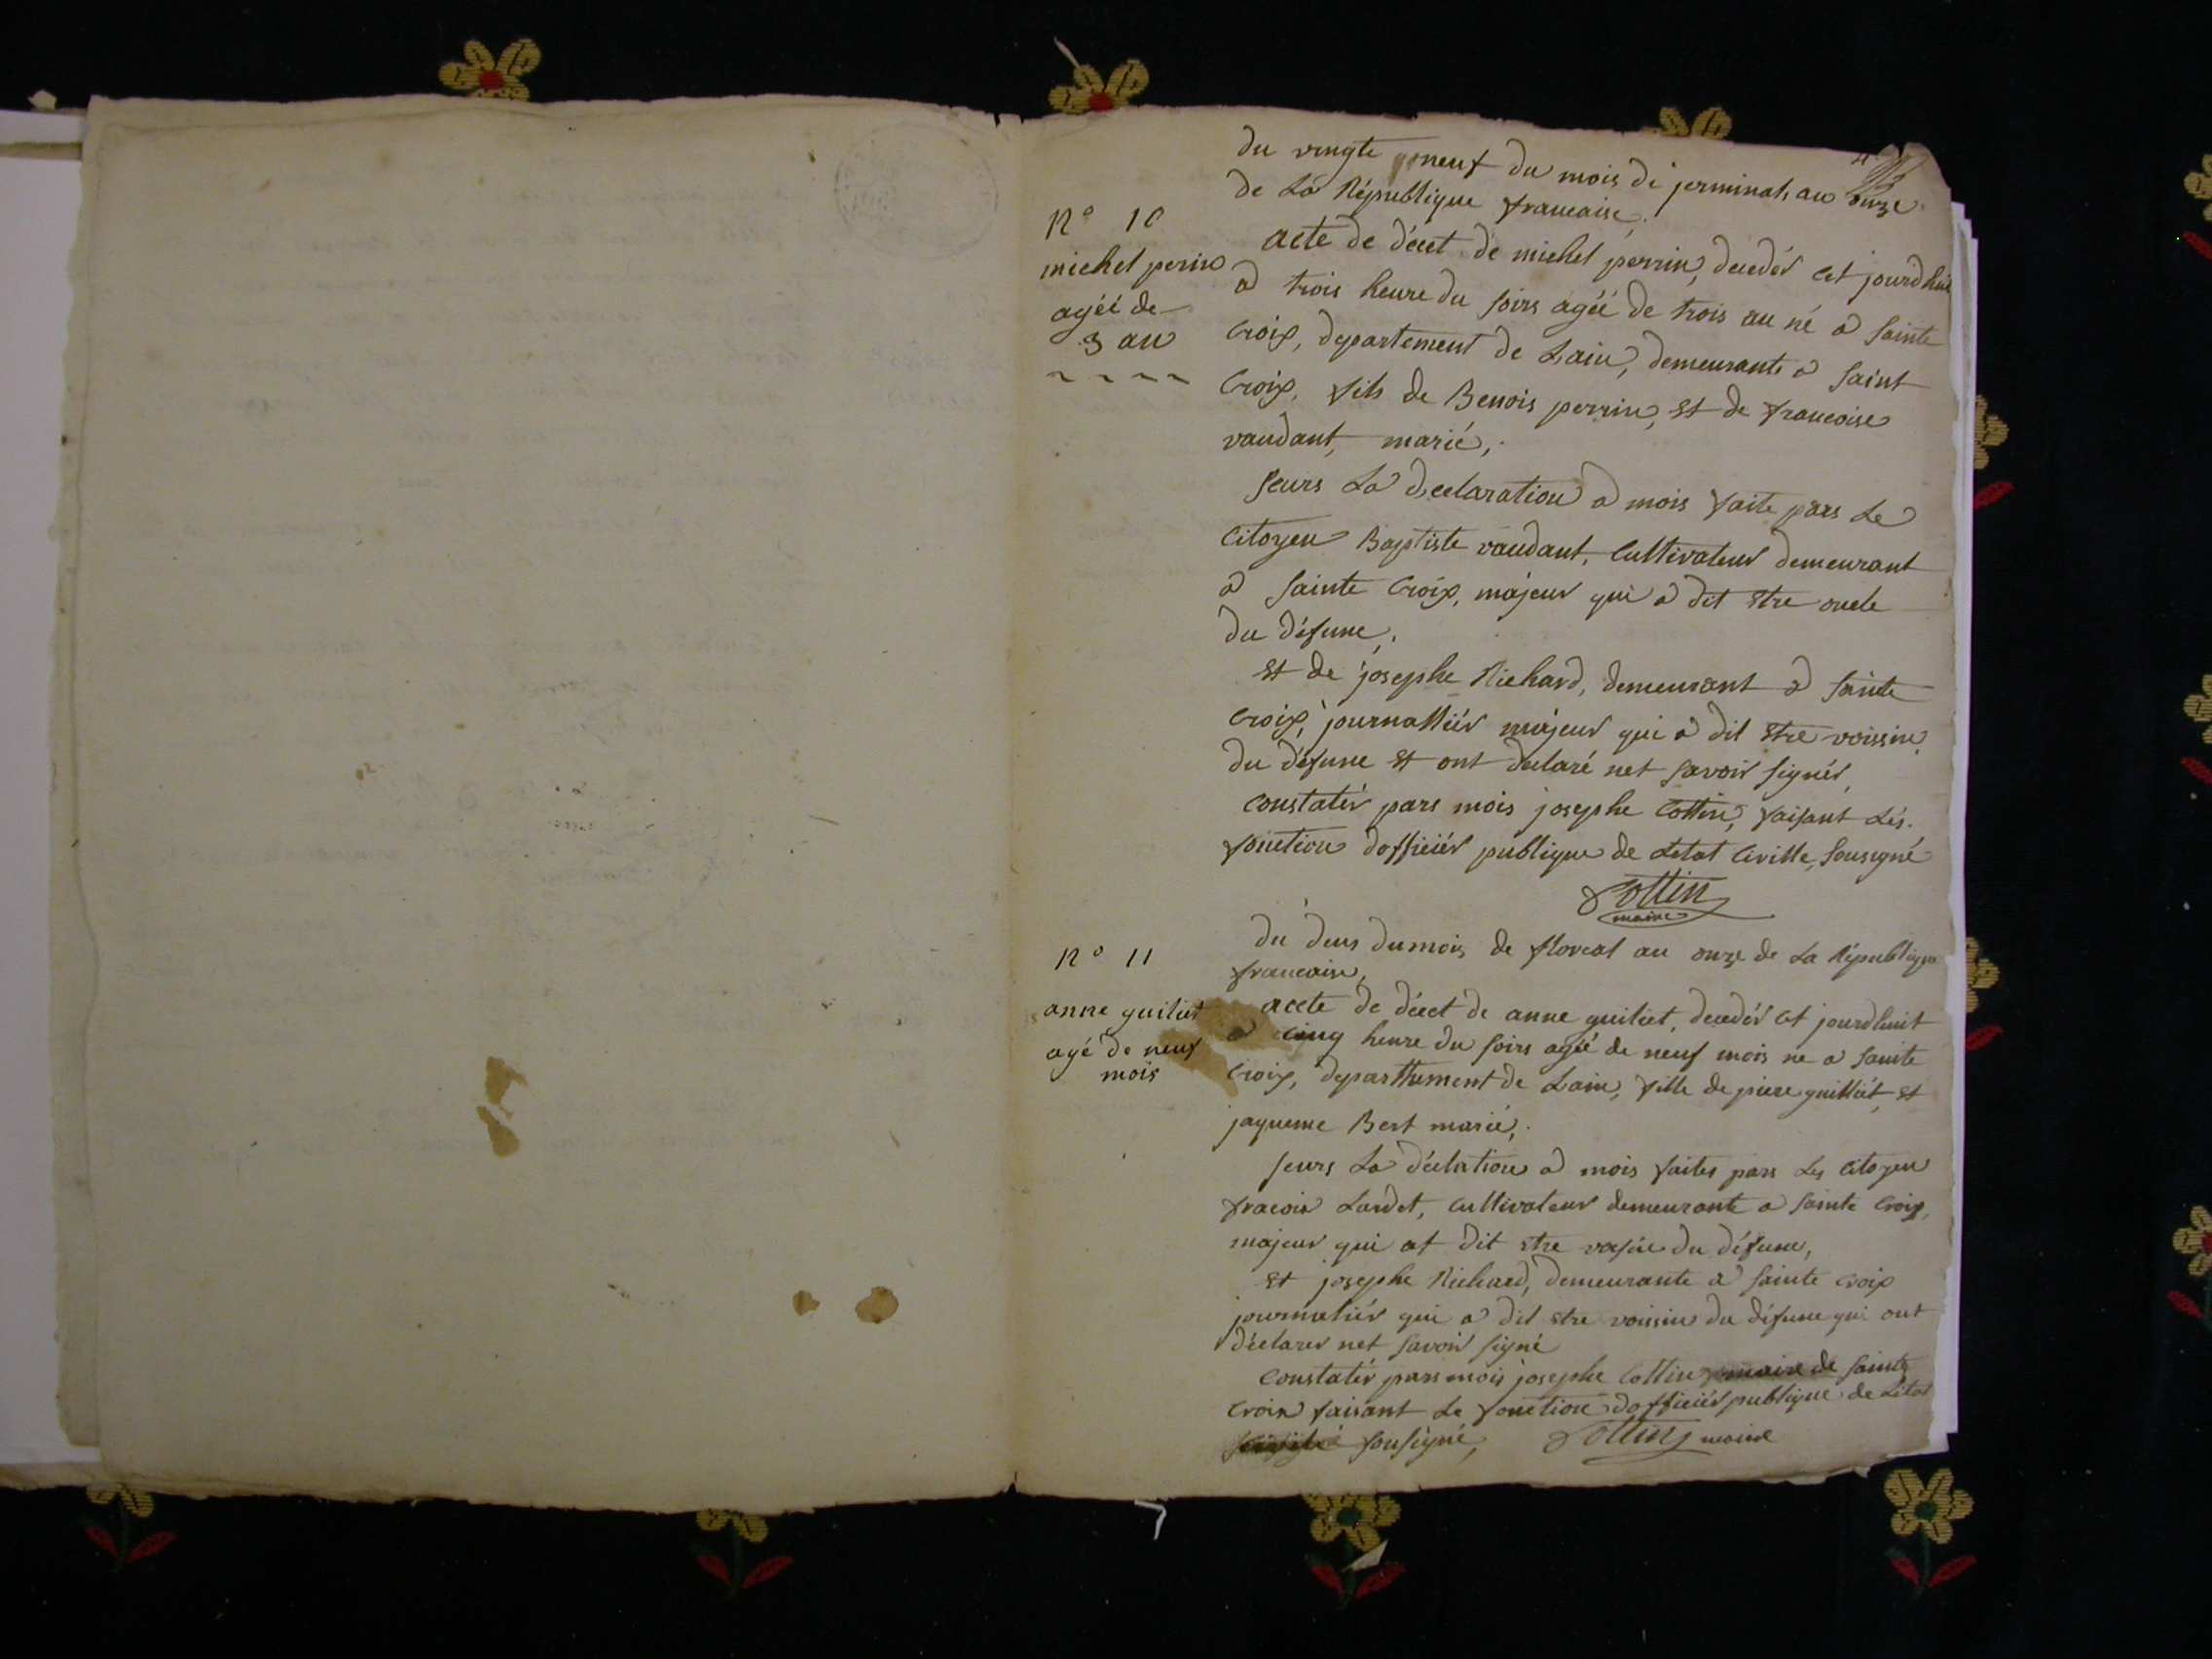 du vingte neuf du mois de jerminal, an onze
de La République francaise,
N° 10
michel perin
ageé de
3 an
acte de décet de michel perrin, decedér cet jourdhui
a trois heure du soirs ageé de trois an né a Sainte
Croix, departement de Lain, demeurante a Saint
Croix, fils de Benois perrin, et de francoise
vaudant, marié,
seurs La declaration a mois faite pars Le
Citoyen Baptiste vaudant, Cultivateur demeurant
a Sainte Croix, majeur qui a dit etre oncle
du défunc,
et de josephe Richard, demeurant a Sainte
Croix, journalliér majeur qui a dit etre voissin
du défunc et ont declaré net savoir signér,
Constatér pars mois josephe Cottin, faisant Lés
fonction dofficiér publique de Letat Civille, Sousigné
Cottin
maire
N° 11
anne guiliet
agé de neuf
mois
du deus du mois de floreal an onze de La République
francaise,
acte de décet de anne guiliet, decedér cet jourdhuit
a cinq heure du soirs ageé de neuf mois ne a Sainte
Croix, departtement de Lain, fille de piere guilliét, et
jaqueme Bert marié,
seurs La déclation a mois faites pars Les Citoyen
fracois Lardet, Cultivateur demeurante a Sainte Croix,
majeur qui at dit etre du défunc,
et josephe Richard, demeurante a Sainte Croix
journaliér qui a dit etre voissin du défunc qui ont
déclarer net savoir signé
Constatér pars mois josephe Cottin maire de Sainte
Croix faisant Le fonction dofficiér publique de Létat
sousigné, Cottin maire